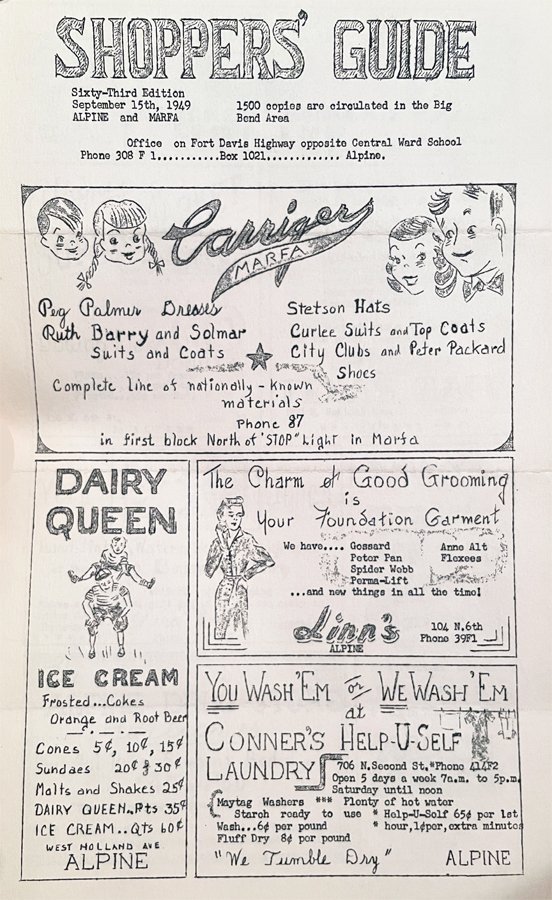 SHOPPERS' GUIDE
Sixty-Third Edition
September 15th, 1949
ALPINE and MARFA
1500 copies are circulated in the Big
Bend Area
Office on Fort Davis Highway opposite Central Ward School
Phone 308 F 1...........Box 1021............. Alpine.
Carriger
MARFA
Peg Palmer Dresses
Ruth Barry and Solmar
Suits and Coats
Stetson Hats
Curlee Suits and Top Coats
City Clubs and Peter Packard
Shoes
Complete line of nationally-known
materials
Phone 87
in first block North of 'STOP' Light in Marfa
DAIRY
QUEEN
ICE CREAM
Frosted...Cokes
Orange and Root Beer
Cones 5¢, 10¢, 15¢
Sundaes 20¢ & 30¢
Malts and Shakes 25¢
DAIRY QUEEN..Pts 35¢
ICE CREAM..Qts 60¢
WEST HOLLAND AVE.
ALPINE
The Charm of Good Grooming
is
Your Foundation Garment
We have.... Gossard
Peter Pan
Spider Webb
Perma-Lift
Anne Alt
Flexees
...and new things in all the time!
Linn's
ALPINE
104 N.6th
Phone 39F1
YOU WASH 'EM or WE WASH 'EM
at
CONNER'S HELP-U-SELF
LAUNDRY
706 N.Second St.*Phone 414F2
Open 5 days a week 7a.m. to 5p.m.
Saturday until noon
Maytag Washers *** Plenty of hot water
Starch ready to use * Help-U-Self 65¢ per 1st
Wash...6¢ per pound * hour,1¢per,extra minutes
Fluff Dry 8¢ per pound
"We Tumble Dry" ALPINE